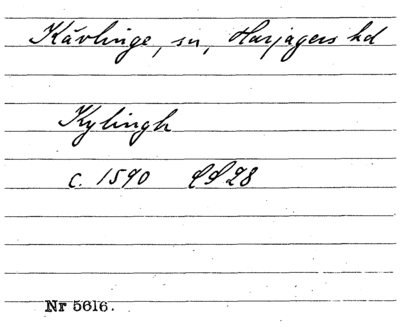 Kävlinge, sn, Harjagers hd
Kylingh
c. 1590 LL 28
Nr 5616.